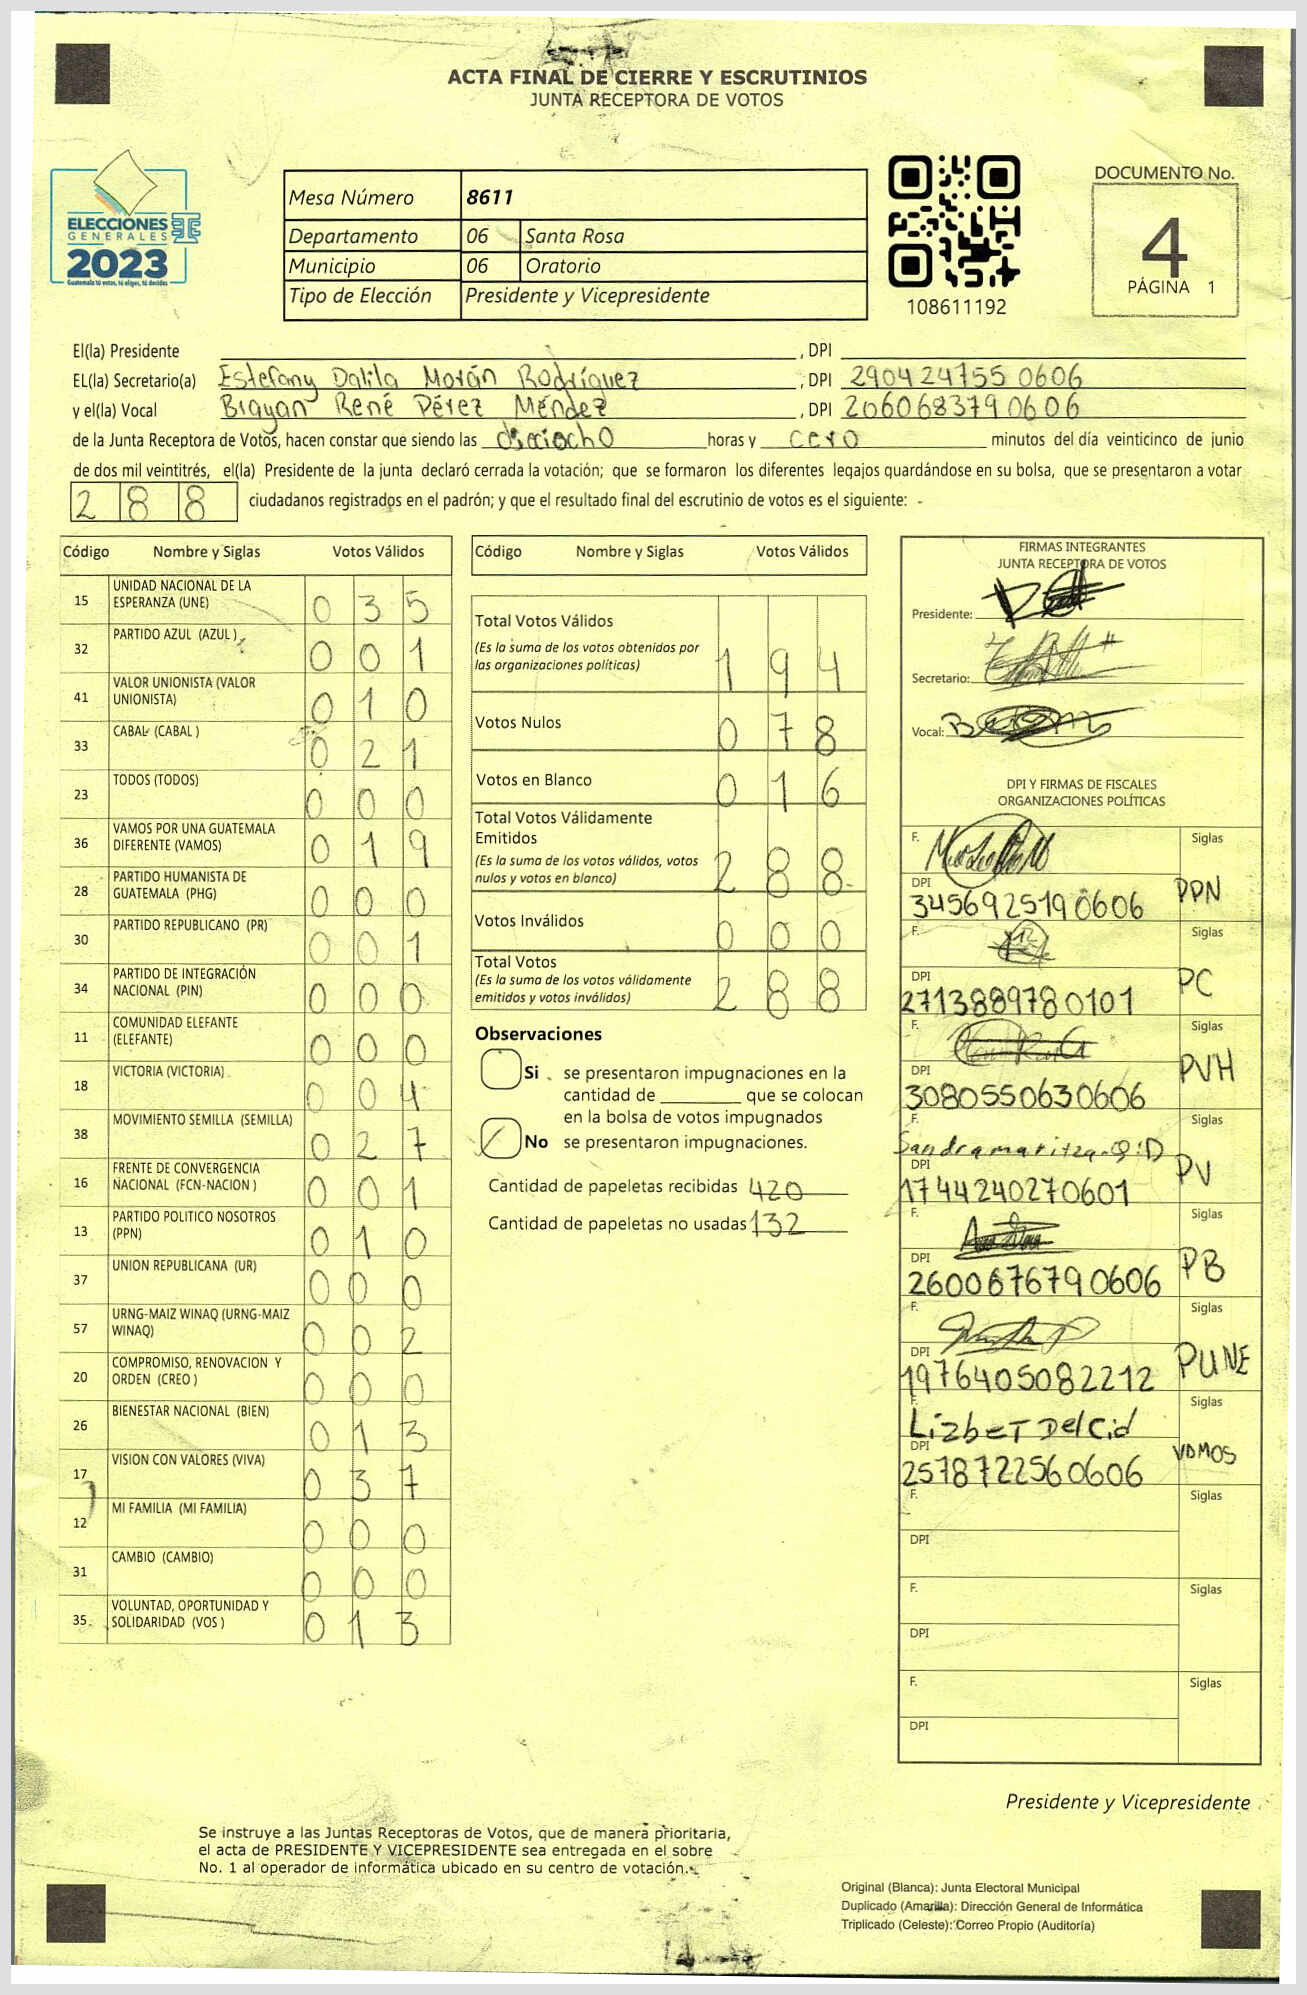 ACTA FINAL DE CIERRE Y ESCRUTINIOS
JUNTA RECEPTORA DE VOTOS
ELECCIONES
GENERALES
2023
Guatemala tú votas, tú eliges, tú decides
Mesa Número 8611
Departamento 06 Santa Rosa
Municipio 06 Oratorio
Tipo de Elección Presidente y Vicepresidente
108611192
DOCUMENTO No.
4
PÁGINA 1
El(la) Presidente , DPI
EL(la) Secretario(a) Estefany Dalila Morán Rodríguez , DPI 290424755 0606
y el(la) Vocal Brayan René Pérez Méndez , DPI 206068379 0606
de la Junta Receptora de Votos, hacen constar que siendo las dieciocho horas y cero minutos del día veinticinco de junio
de dos mil veintitrés, el(la) Presidente de la junta declaró cerrada la votación; que se formaron los diferentes legajos quardándose en su bolsa, que se presentaron a votar
288 ciudadanos registrados en el padrón; y que el resultado final del escrutinio de votos es el siguiente: -
Código Nombre y Siglas Votos Válidos
15 UNIDAD NACIONAL DE LA
ESPERANZA (UNE) 035
32 PARTIDO AZUL (AZUL) 001
41 VALOR UNIONISTA (VALOR
UNIONISTA) 010
33 CABAL (CABAL ) 021
23 TODOS (TODOS) 000
36 VAMOS POR UNA GUATEMALA
DIFERENTE (VAMOS) 019
28 PARTIDO HUMANISTA DE
GUATEMALA (PHG) 000
30 PARTIDO REPUBLICANO (PR) 001
34 PARTIDO DE INTEGRACIÓN
NACIONAL (PIN) 000
11 COMUNIDAD ELEFANTE
(ELEFANTE) 000
18 VICTORIA (VICTORIA) 004
38 MOVIMIENTO SEMILLA (SEMILLA) 027
16 FRENTE DE CONVERGENCIA
NACIONAL (FCN-NACION ) 001
13 PARTIDO POLITICO NOSOTROS
(PPN) 010
37 UNION REPUBLICANA (UR) 000
57 URNG-MAIZ WINAQ (URNG-MAIZ
WINAQ) 002
20 COMPROMISO, RENOVACION Y
ORDEN (CREO ) 000
26 BIENESTAR NACIONAL (BIEN) 013
17 VISION CON VALORES (VIVA) 037
12 MI FAMILIA (MI FAMILIA) 000
31 CAMBIO (CAMBIO) 000
35 VOLUNTAD, OPORTUNIDAD Y
SOLIDARIDAD (VOS ) 013
Código Nombre y Siglas Votos Válidos
Total Votos Válidos
(Es la suma de los votos obtenidos por
las organizaciones políticas) 194
Votos Nulos 078
Votos en Blanco 016
Total Votos Válidamente
Emitidos
(Es la suma de los votos válidos, votos
nulos y votos en blanco) 288
Votos Inválidos 000
Total Votos
(Es la suma de los votos válidamente
emitidos y votos inválidos) 288
Observaciones
Si se presentaron impugnaciones en la
cantidad de ________ que se colocan
en la bolsa de votos impugnados
No se presentaron impugnaciones.
Cantidad de papeletas recibidas 420
Cantidad de papeletas no usadas 132
FIRMAS INTEGRANTES
JUNTA RECEPTORA DE VOTOS
Presidente:
Secretario:
Vocal:
DPI Y FIRMAS DE FISCALES
ORGANIZACIONES POLÍTICAS
F. Siglas
DPI PPN
345692519 0606
F. Siglas
DPI PC
2713889780101
F. Siglas
DPI PVH
3080550630606
F. Siglas
Sandra maritza Q:D
DPI PV
1744240270601
F. Siglas
DPI PB
260067679 0606
F. Siglas
DPI PUNE
1976405082212
F. Siglas
Lizbet Delcid
DPI VAMOS
2578722560606
F. Siglas
DPI
F. Siglas
DPI
F. Siglas
DPI
Presidente y Vicepresidente
Se instruye a las Juntas Receptoras de Votos, que de manera prioritaria,
el acta de PRESIDENTE Y VICEPRESIDENTE sea entregada en el sobre
No. 1 al operador de informática ubicado en su centro de votación.
Original (Blanca): Junta Electoral Municipal
Duplicado (Amarilla): Dirección General de Informática
Triplicado (Celeste): Correo Propio (Auditoría)